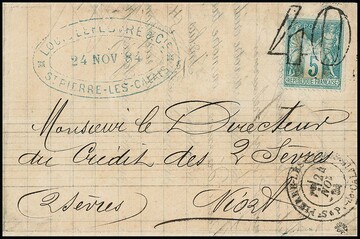 LOUIS LEFEUVRE & Cie
24 NOV 84
St PIERRE-LES-CALAIS
40
5
REPUBLIQUE FRANÇAISE
Monsieur le Directeur
du Crédit des 2 Sèvres
2 Sèvres) Niort
24
NOV
84